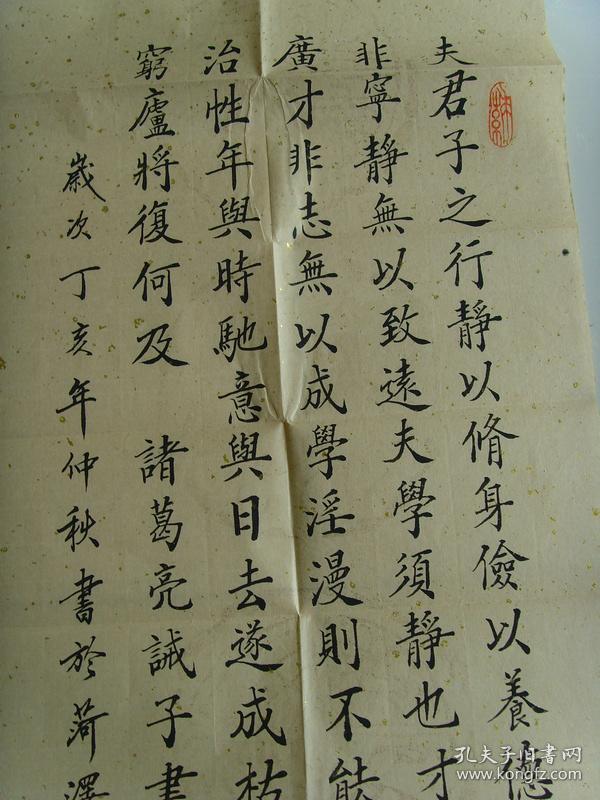 夫君子之行靜以脩身儉以養德
非寧靜無以致遠夫學須靜也才
廣才非志無以成學淫漫則不能
治性年與時馳意與日去遂成枯
窮廬將復何及 諸葛亮誡子書
歲次丁亥年仲秋書於菏澤
孔夫子旧书网
www.kongfz.com